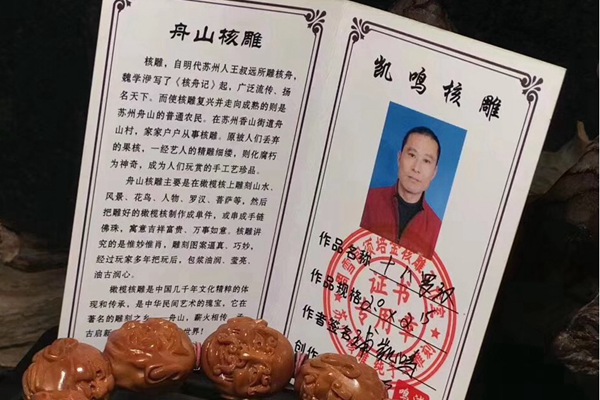 舟山核雕
核雕，自明代苏州人王叔远所雕核舟，
魏学洢写了《核舟记》起，广泛流传、扬
名天下。而使核雕复兴并走向成熟的则是
苏州舟山的普通农民。在苏州香山街道舟
山村，家家户户从事核雕。原被人们丢弃
的果核，一经艺人的精雕细缕，则化腐朽
为神奇，成为人们玩赏的手工艺珍品。
舟山核雕主要是在橄榄核上雕刻山水、
风景、花鸟、人物、罗汉、菩萨等，然后
把雕好的橄榄核制作成单件，或串成手链
佛珠，寓意吉祥富贵、万事如意。核雕讲
究的是惟妙惟肖，雕刻图案逼真、巧妙，
经过玩家多年把玩后，包浆油润、莹亮，
油古润心。
橄榄核雕是中国几千年文化精粹的体
现和传承，是中华民间艺术的瑰宝，它在
著名的雕刻之乡——舟山，薪火相传，
古启新
世界！
凯鸣核雕
作品名称
作品规格
作者签名
创作
证书
专用章
核雕